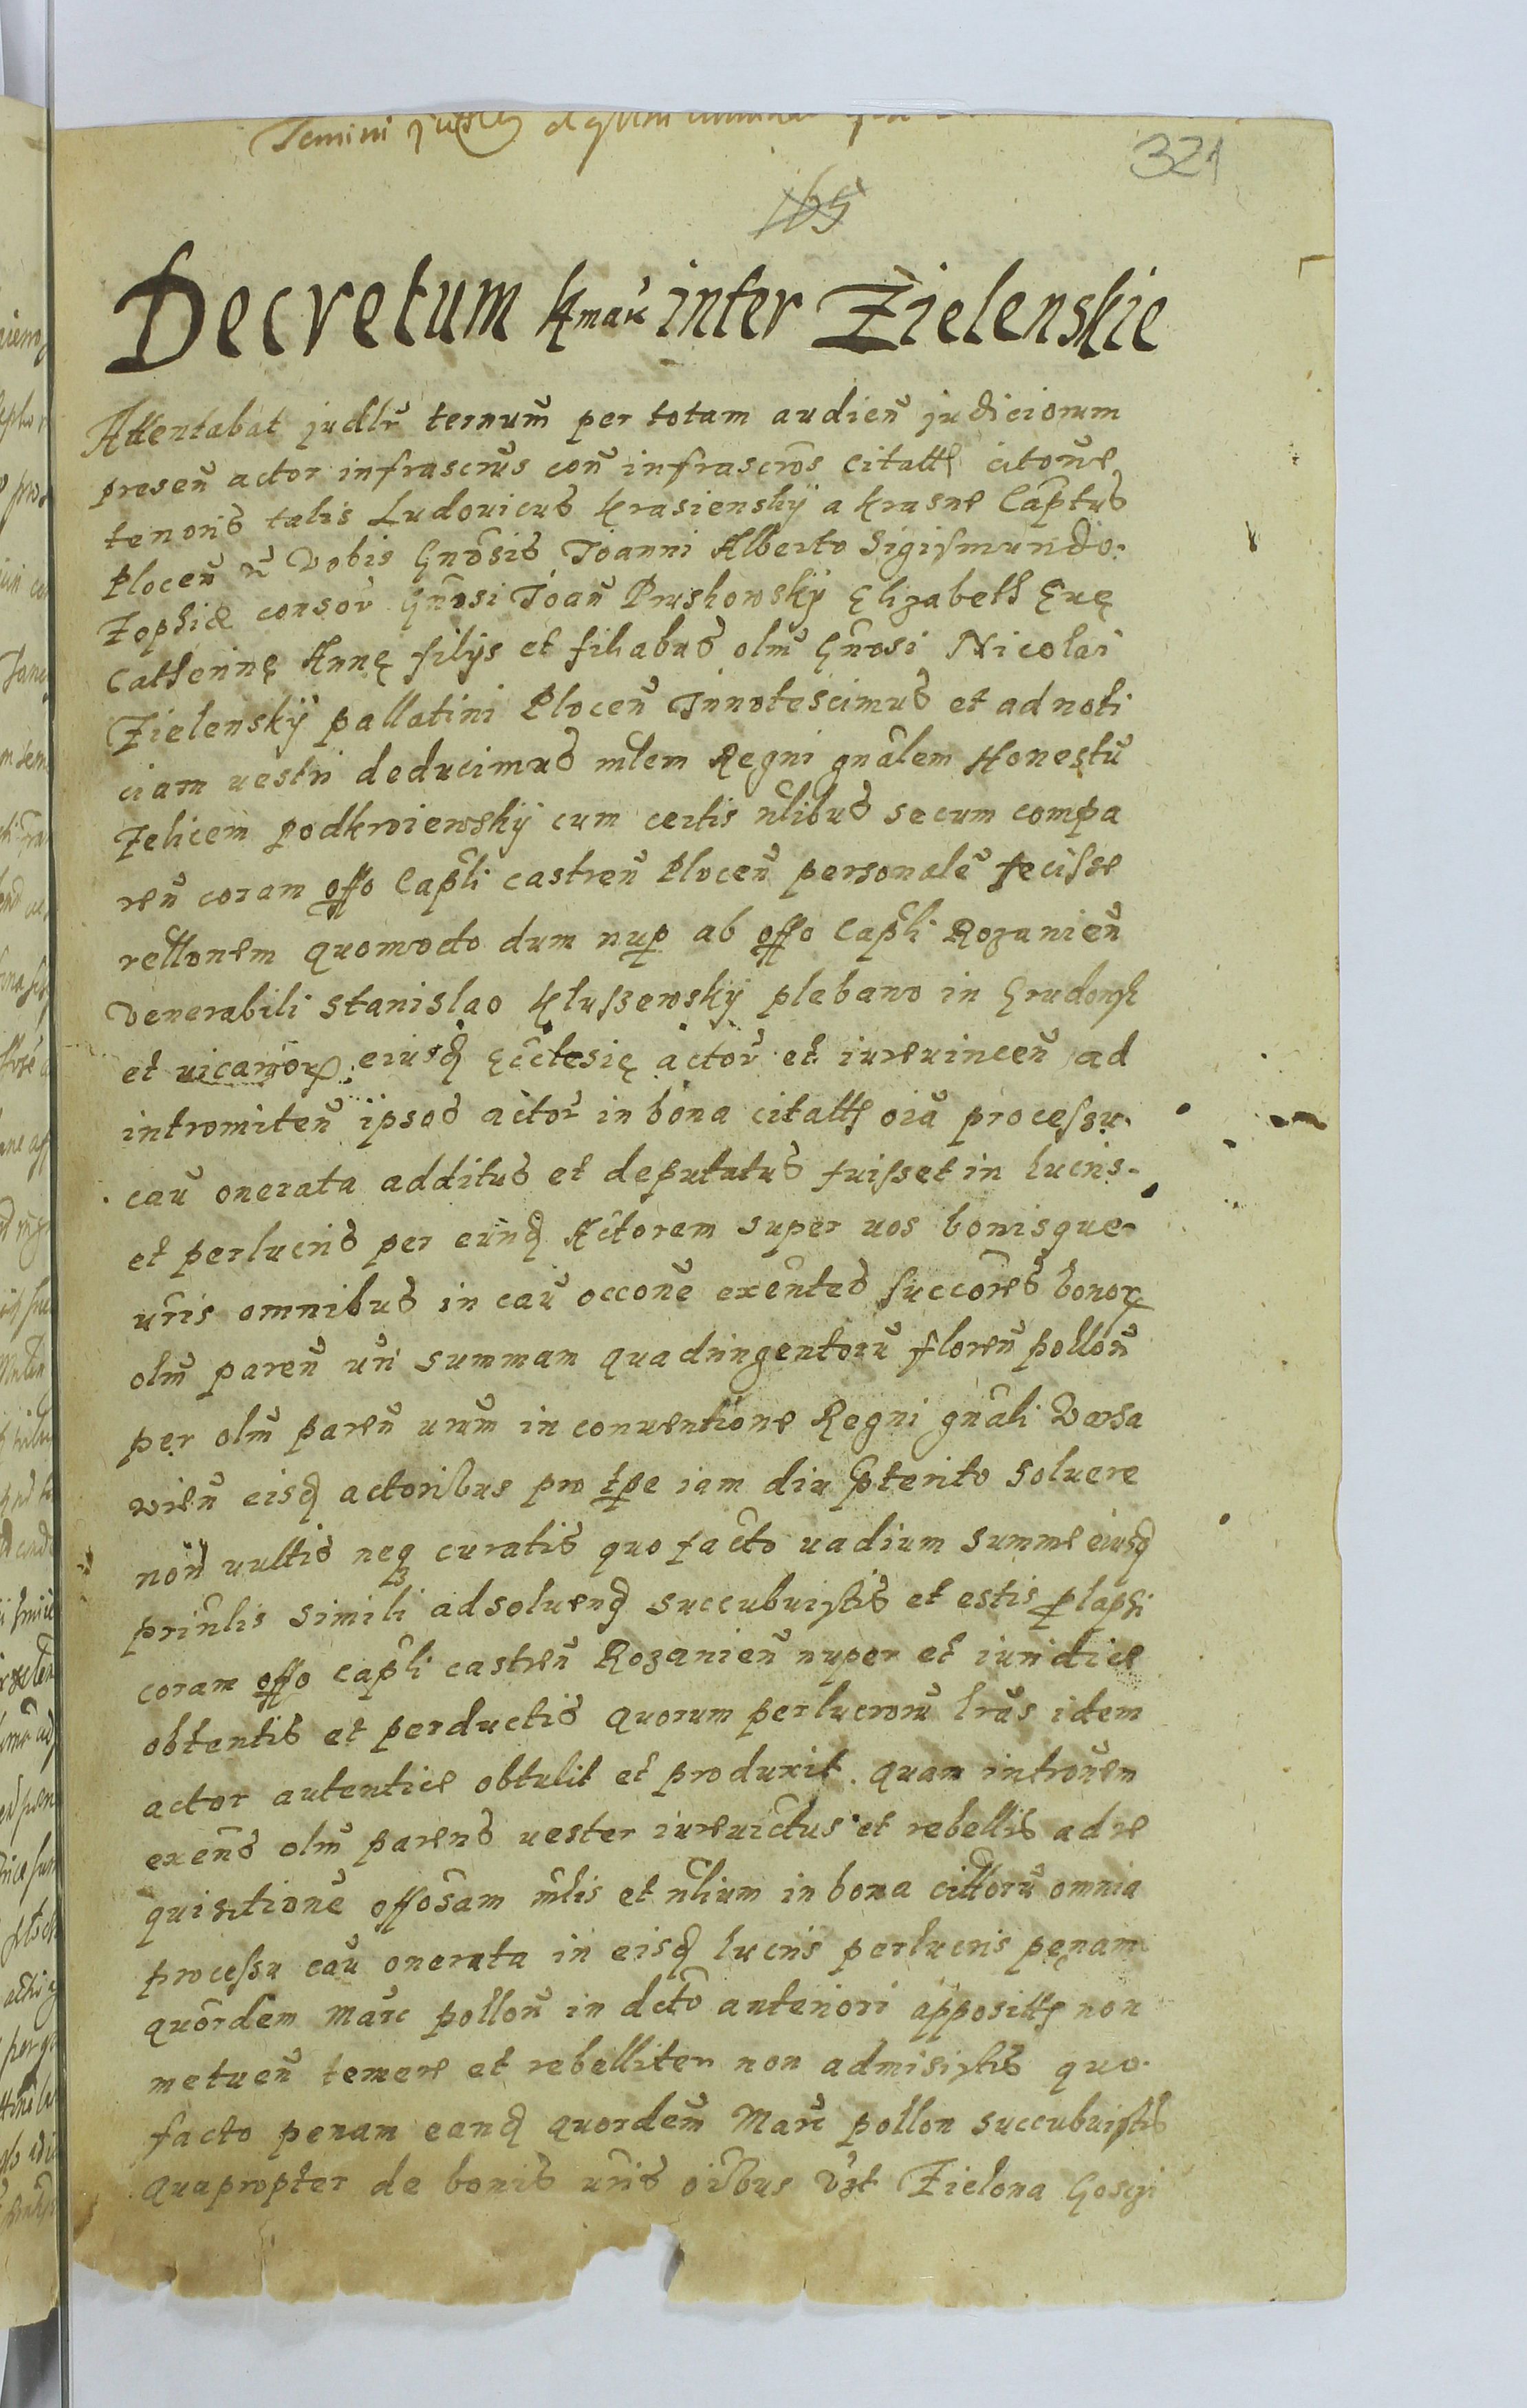 321
165
Decretum kmar inter Zielenskie
Attentabat judlr̃ ternum̃ per totam audieñ judiciorum
preseñ actor infrascrũs coñ infrascrõs citatt citoñe
tenoris talis Ludovicus Krasienskÿ a Krasne Captus
Ploceñ r̃ Vobis Gnõsis Joanni Alberto Sigismundo.
Zophie consor̃ Gñosi Joañ Pruskowskÿ Elizabeth Euę
Catherinę Annę filijs et filiabus olm̃ Gñosi Nicolai
Zielenskÿ pallatini Ploceñ Innotescimus et ad noti
ciam uestri deducimus mlem Regni gnãlem Honestũ
Felicem Podkroiewskÿ cum certis nlibus secum compa
reñ coram offo Capli castreñ Ploceñ personalẽ fecisse
rellonem quomodo dum nup ab offo Capli Rozanieñ
Venerabili Stanislao Kluszewskÿ plebano in Grudousk
et uicarior eiusq Ecclesię actor̃ et iureuinceñ ad
intromiteñ ipsos actor̃ in bona citatt oiã processu
caũ onerata additus et deputatus fuisset in lucris
et perlucris per eunq Actorem super uos bonisque
uris omnibus in caũ occoñe exeñtes succores bonor
olm̃ pareñ uri summam quadringentorũ floreñ polloñ
per olm̃ pareñ urum in conuentione Regni gnãli Varsa
uieñ eisq actoribus pro tpe iam diu pterito soluere
non uultis neq curatis quo facto uadium summe eiusq
prinlis simili ad soluenq succubuistis et estis plapsi
coram offo Capli castreñ Rozanieñ nuper et iuridice
obtentis et perductis quorum perlucrorũ lras idem
actor autentice obtulit et produxit. quam introñem
exeñs olm̃ parens uester iureuictus et rebellis ad re
quisitionẽ offosam mlis et nlium in bona cittorũ omnia
processu caũ onerata in eisq lucris perlucris pęnam
quordem Marc polloñ in dcto anteriori appositt non
metueñ temere et rebelliter non admisistis quo.
facto penam eanq quordem Marc pollon succubuistis
quapropter de bonis uris oibus Vzt Zielona